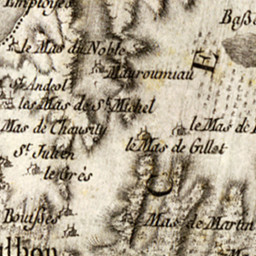 Employés
le Mas du Noble
Mauroumiau
E
St. Andeol
les Mas de St. Michel
Mas de Chausily
le Mas de
St. Julien
le Mas de Gillet
le Grés
C
Boutses
Mas de Martin